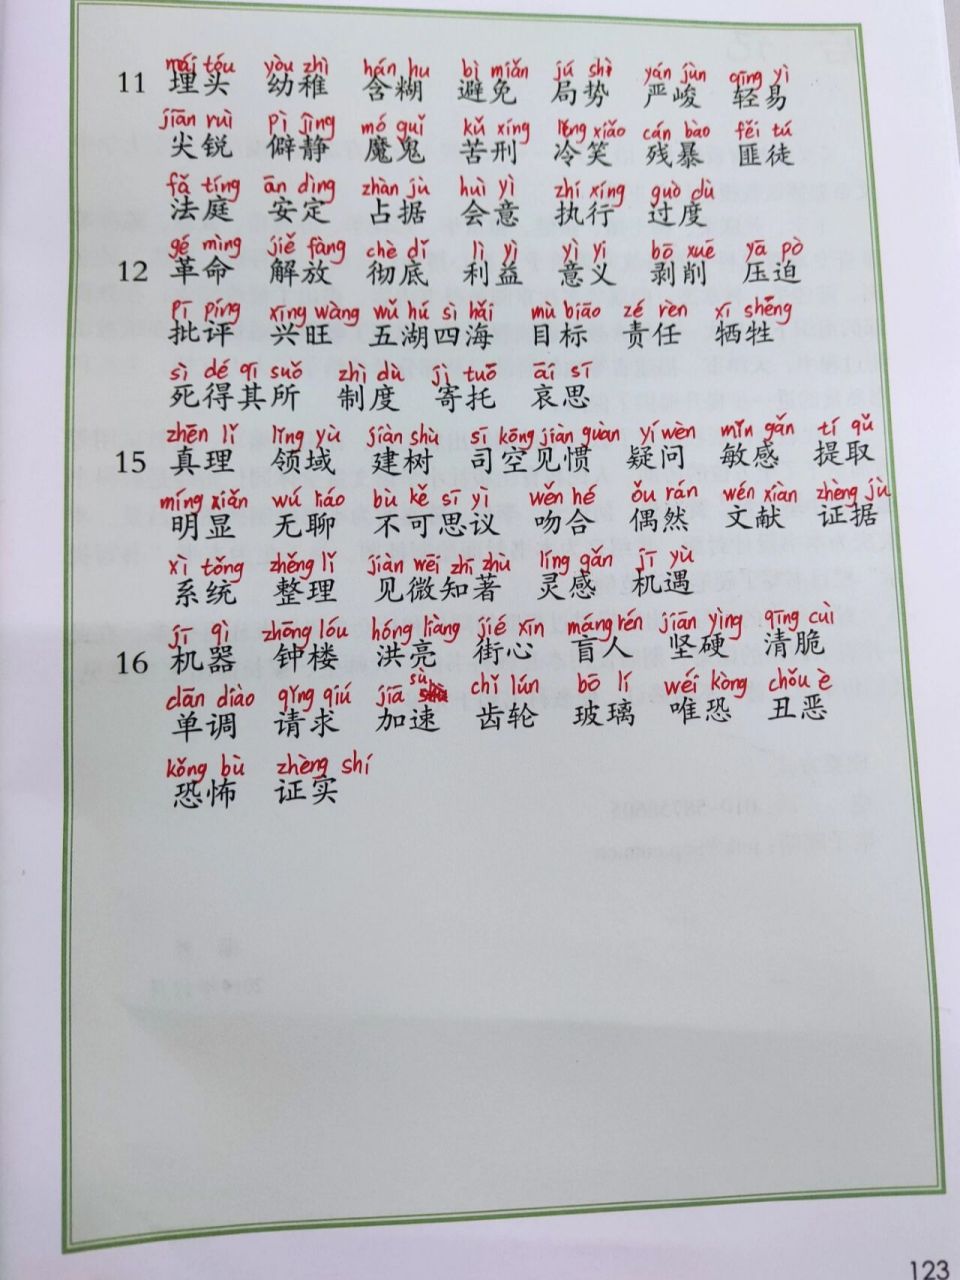 mái tóu yòu zhì hán hu bì miǎn jú shì yán jùn qīng yì
11 埋头 幼稚 含糊 避免 局势 严峻 轻易
jiān ruì pì jìng mó guǐ kǔ xíng lěng xiào cán bào fěi tú
尖锐 僻静 魔鬼 苦刑 冷笑 残暴 匪徒
fǎ tíng ān dìng zhàn jù huì yì zhí xíng guò dù
法庭 安定 占据 会意 执行 过度
gé mìng jiě fàng chè dǐ lì yì yì yì bō xuē yā pò
12 革命 解放 彻底 利益 意义 剥削 压迫
pī píng xīng wàng wǔ hú sì hǎi mù biāo zé rèn xī shēng
批评 兴旺 五湖四海 目标 责任 牺牲
sì dé qī suǒ zhì dù jì tuō āi sī
死得其所 制度 寄托 哀思
zhēn lǐ lǐng yù jiàn shù sī kōng jiàn guàn yí wèn mǐn gǎn tí qǔ
15 真理 领域 建树 司空见惯 疑问 敏感 提取
míng xiǎn wú liáo bù kě sī yì wěn hé ǒu rán wén xiàn zhèng jù
明显 无聊 不可思议 吻合 偶然 文献 证据
xì tǒng zhěng lǐ jiàn wēi zhī zhù líng gǎn jī yù
系统 整理 见微知著 灵感 机遇
jī qì zhōng lóu hóng liàng jiē xīn máng rén jiān yìng qīng cuì
16 机器 钟楼 洪亮 街心 盲人 坚硬 清脆
dān diào qǐng qiú jiā sù chǐ lún bō lí wéi kòng chǒu è
单调 请求 加速 齿轮 玻璃 唯恐 丑恶
kǒng bù zhèng shí
恐怖 证实
123